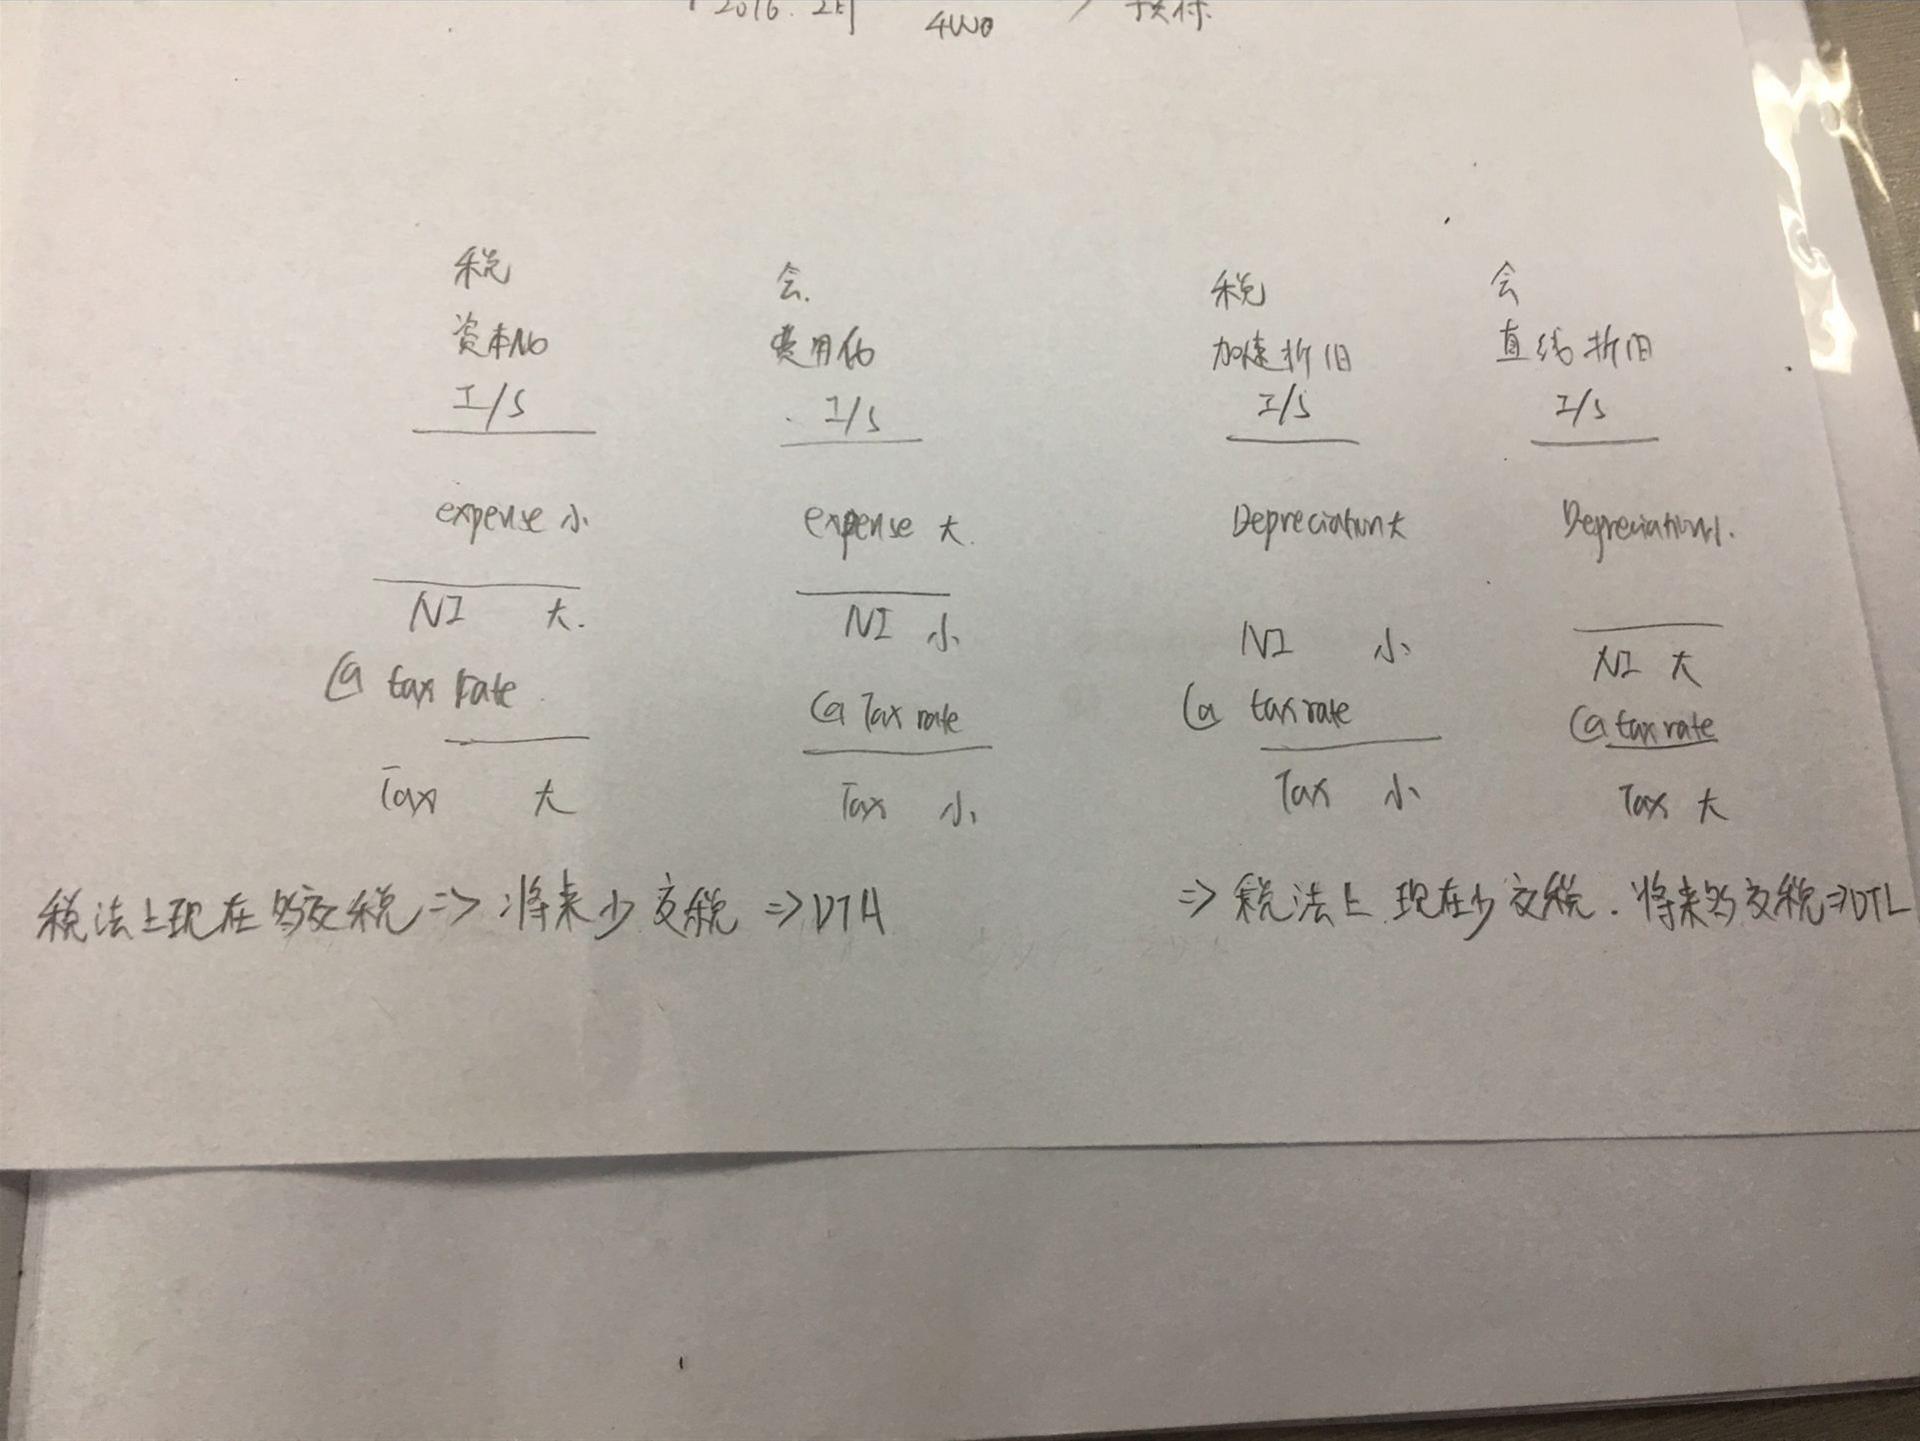 2016. 2月 4W0 预付.
税 会.
资本化 费用化
I/S I/S
expense 小 expense 大.
NI 大. NI 小
@ tax rate @ Tax rate
Tax 大 Tax 小
税法上现在多交税 => 将来少交税 => DTA
税 会
加速折旧 直线折旧
I/S I/S
Depreciation大 Depreciation小.
NI 小 NI 大
@ tax rate @ tax rate
Tax 小 Tax 大
=> 税法上现在少交税. 将来多交税=>DTL